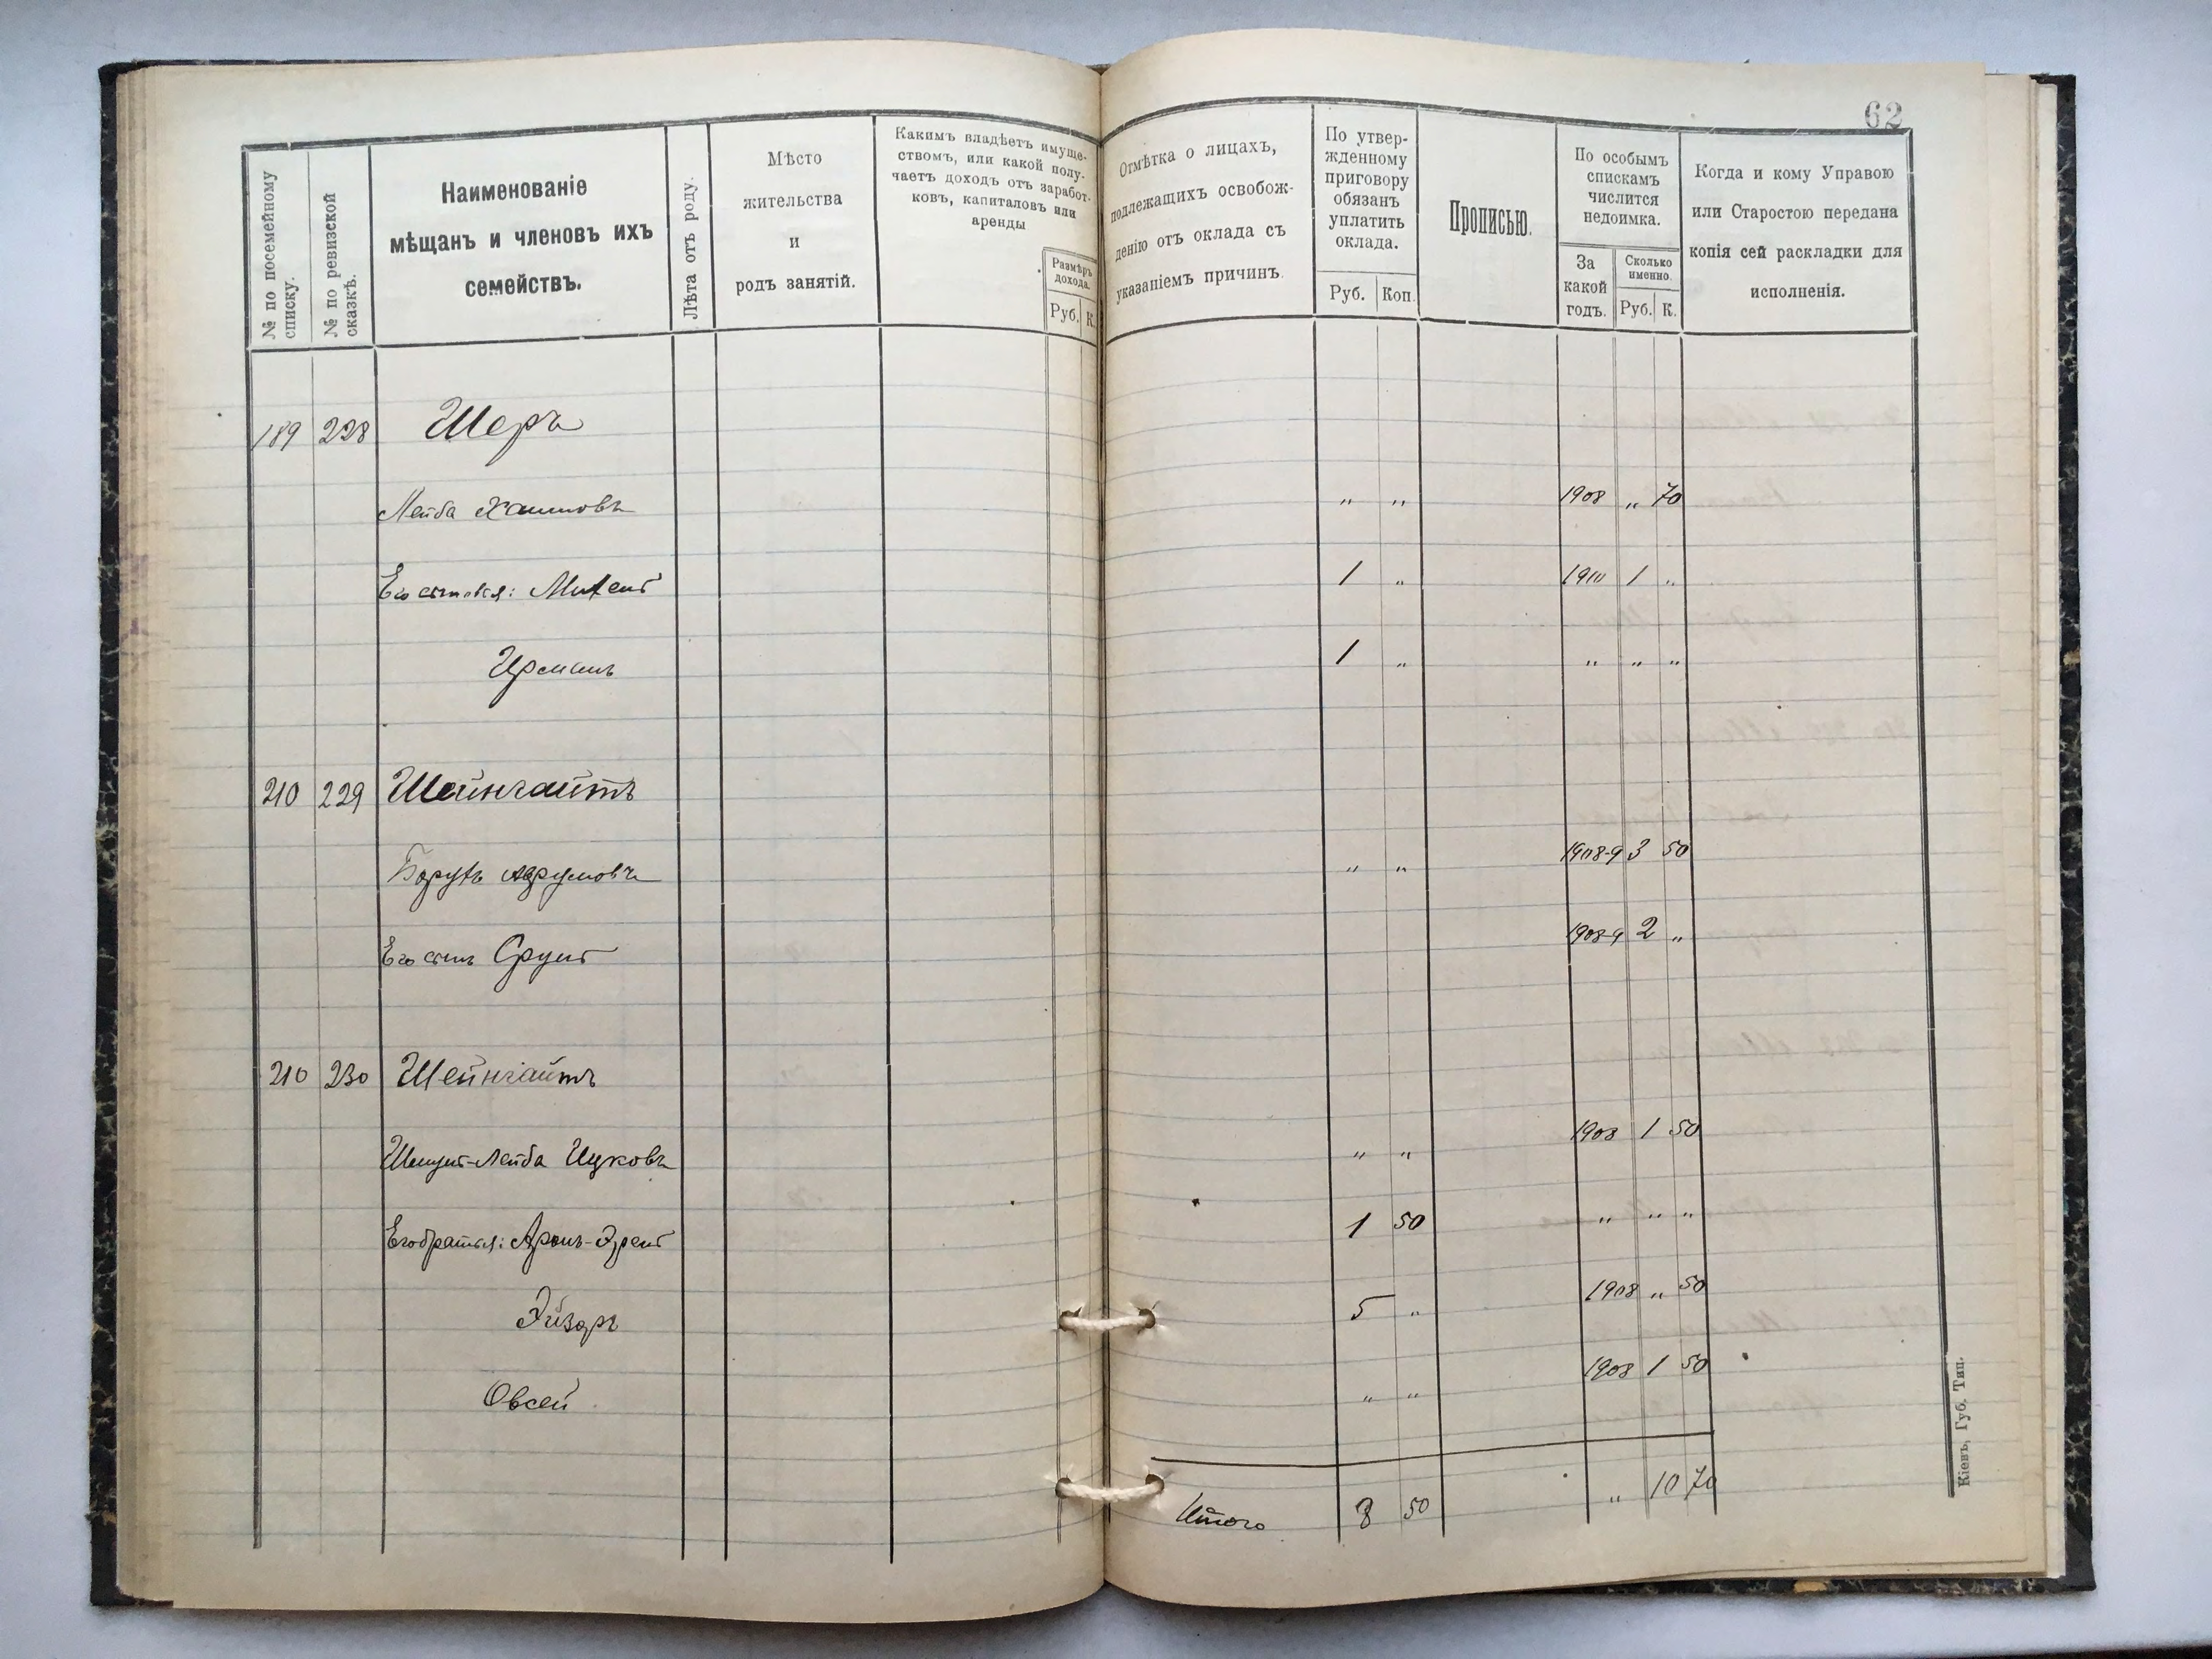 62
№ по посемейному списку.
№ по ревизской сказкѣ.
Наименованіе
мѣщанъ и членовъ ихъ
семействъ.
Лѣта отъ роду.
Мѣсто
жительства
и
родъ занятій.
Какимъ владѣетъ имуще-
ствомъ, или какой полу-
чаетъ доходъ отъ заработ-
ковъ, капиталовъ или
аренды
Размѣръ
дохода.
Руб. К.
Отмѣтка о лицахъ,
подлежащихъ освобож-
денію отъ оклада съ
указаніемъ причинъ.
По утвер-
жденному
приговору
обязанъ
уплатить
оклада.
Руб. Коп.
Прописью.
По особымъ
спискамъ
числится
недоимка.
За
какой
годъ.
Сколько
именно.
Руб. К.
Когда и кому Управою
или Старостою передана
копія сей раскладки для
исполненія.
189 228 Шеръ
Лейба Хаимовъ „ „ 1908 „ 70
Его сыновья: Михель 1 „ 1910 1 „
Ирсишъ 1 „ „ „ „
210 229 Шейнгайтъ
Борухъ Аврумовъ „ „ 1908-9 3 50
Его сынъ Сруль 1908-9 2 „
210 230 Шейнгайтъ
Шмуль-Лейба Ицковъ „ „ 1908 1 50
Его братья: Аронъ- 1 50 „ „ „
Эйзоръ 5 „ 1908 „ 50
Овсей „ „ 1908 1 50
Итого 8 50 „ 10 70
Кіевъ, Губ. Тип.